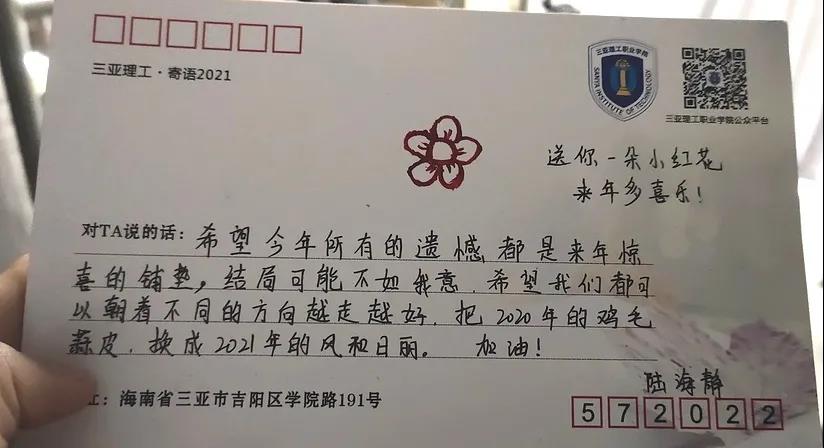 三亚理工·寄语2021
三亚理工职业学院
SANYA INSTITUTE OF TECHNOLOGY
三亚理工职业学院公众平台
送你一朵小红花
来年多喜乐！
对TA说的话：希望今年所有的遗憾都是来年惊
喜的铺垫，结局可能不如我意，希望我们都可
以朝着不同的方向越走越好，把2020年的鸡毛
蒜皮，换成2021年的风和日丽。 加油！
陆海静
址：海南省三亚市吉阳区学院路191号
572022